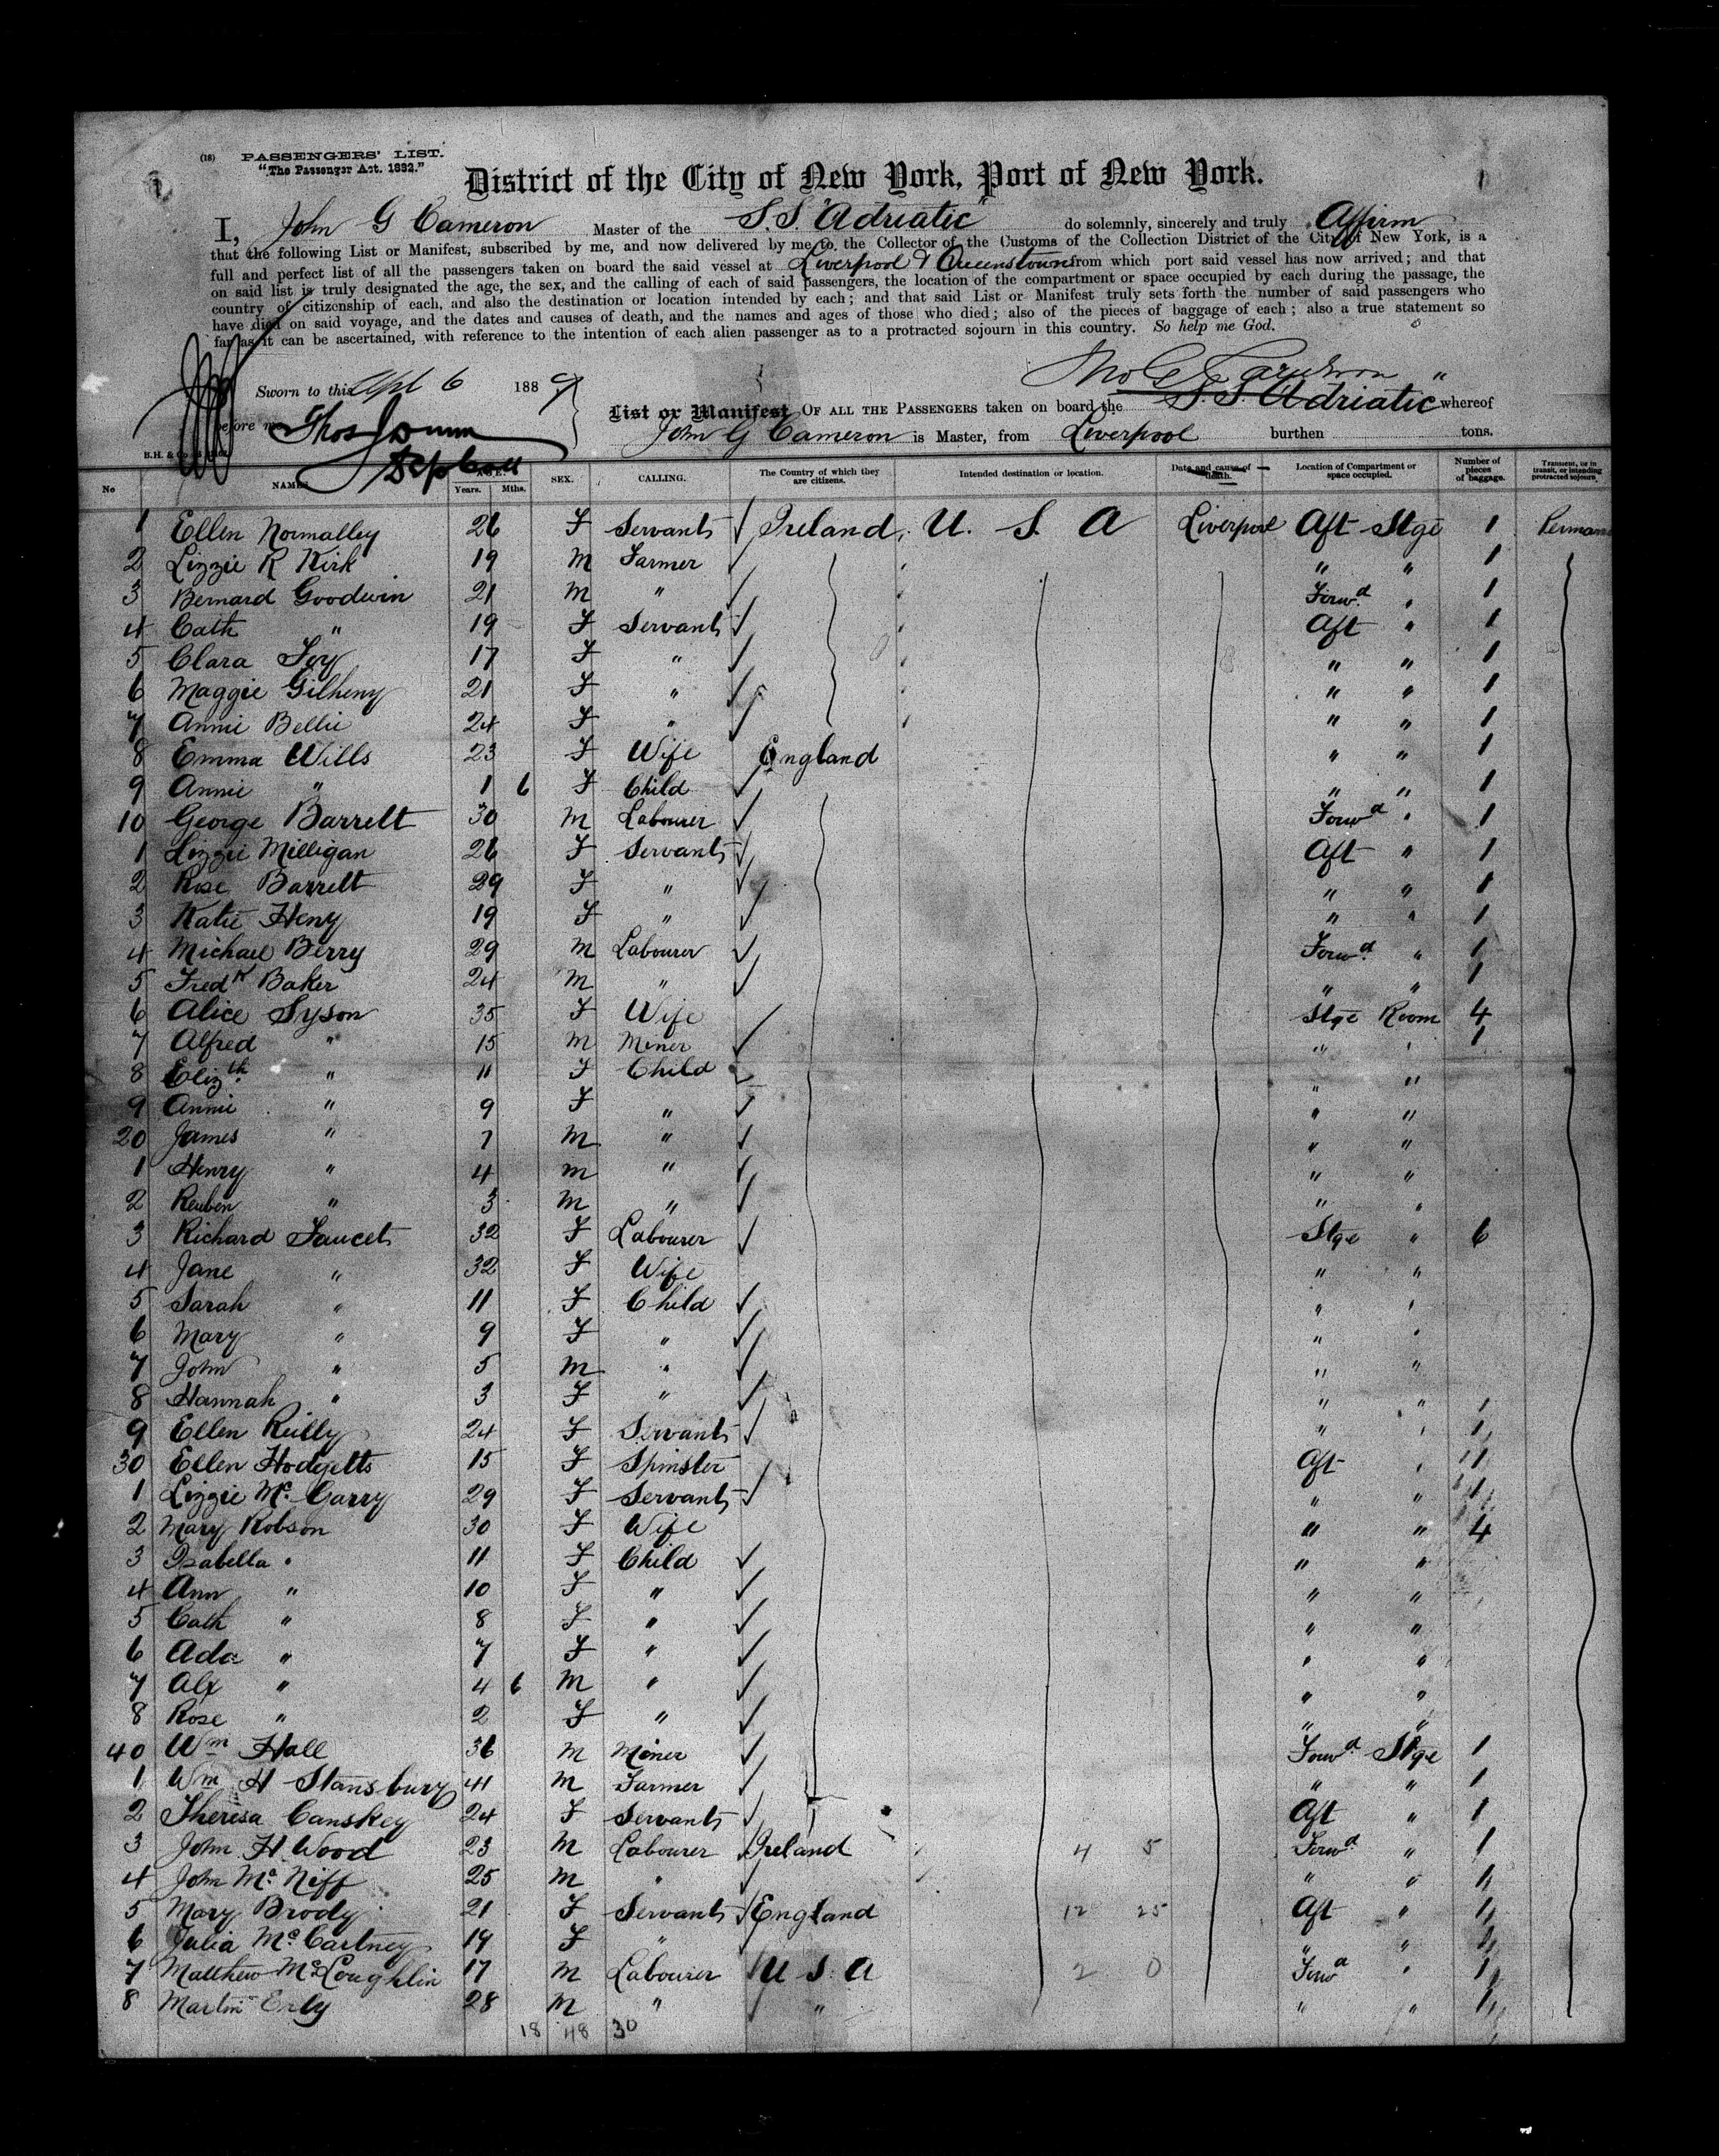 (18) PASSENGERS' LIST.
"The Passenger Act. 1882."
District of the City of New York, Port of New York.
I, John G Cameron Master of the S.S. "Adriatic" do solemnly, sincerely and truly Affirm
that the following List or Manifest, subscribed by me, and now delivered by me to the Collector of the Customs of the Collection District of the City of New York, is a
full and perfect list of all the passengers taken on board the said vessel at Liverpool & Queenstown from which port said vessel has now arrived; and that
on said list is truly designated the age, the sex, and the calling of each of said passengers, the location of the compartment or space occupied by each during the passage, the
country of citizenship of each, and also the destination or location intended by each; and that said List or Manifest truly sets forth the number of said passengers who
have died on said voyage, and the dates and causes of death, and the names and ages of those who died; also of the pieces of baggage of each; also a true statement so
far as it can be ascertained, with reference to the intention of each alien passenger as to a protracted sojourn in this country. So help me God.
Jno G Cameron
Sworn to this Apl 6 1889
before me Thos J Dunn
Dep Coll
List or Manifest OF ALL THE PASSENGERS taken on board the S.S Adriatic whereof
John G Cameron is Master, from Liverpool burthen tons.
No NAMES AGE. Years. Mths. SEX. CALLING. The Country of which they are citizens. Intended destination or location. Date and cause of death. Location of Compartment or space occupied. Number of pieces of baggage. Transient, or in transit, or intending protracted sojourn.
1 Ellen Normalley 26 F Servants Ireland U. S. A Liverpool Aft Stge 1
2 Lizzie R Kirk 19 M Farmer " " 1
3 Bernard Goodwin 21 M " Forwd " 1
4 Cath " 19 F Servants Aft " 1
5 Clara Foy 17 F " " " 1
6 Maggie Gilheny 21 F " " " 1
7 Annie Bellie 24 F " " " 1
8 Emma Wills 23 F Wife England " " 1
9 Annie " 1 6 F Child " " 1
10 George Barrett 30 M Labourer Forwd " 1
1 Lizzie Milligan 26 F Servants Aft " 1
2 Rose Barrett 29 F " " " 1
3 Katie Heny 19 F " " " 1
4 Michael Berry 29 M Labourer Forwd " 1
5 Fredk Baker 24 M " " " 1
6 Alice Syson 35 F Wife Stge Room 4
7 Alfred " 15 M Miner " " 1
8 Elizth " 11 F Child " "
9 Annie " 9 F " " "
20 James " 7 M " " "
1 Henry " 4 M " " "
2 Reuben " 3 M " " "
3 Richard Faucet 32 F Labourer Stge " 6
4 Jane " 32 F Wife " "
5 Sarah " 11 F Child " "
6 Mary " 9 F " " "
7 John " 5 M " " "
8 Hannah " 3 F " " " 1
9 Ellen Reilly 24 F Servants " " 1
30 Ellen Hodgetts 15 F Spinster Aft " 1
1 Lizzie Mc Garry 29 F Servants " " 1
2 Mary Robson 30 F Wife " " 4
3 Isabella " 11 F Child " "
4 Ann " 10 F " " "
5 Cath " 8 F " " "
6 Ada " 7 F " " "
7 Alx " 4 6 M " " "
8 Rose " 2 F " " "
40 Wm Hall 36 M Miner Forwd Stge 1
1 Wm H Stansbury 41 M Farmer " " 1
2 Theresa Canskey 24 F Servants Aft " 1
3 John H. Wood 23 M Labourer Ireland 4 5 Forwd " 1
4 John Mc Niff 25 M " " " 1
5 Mary Brody 21 F Servants England 12 25 Aft " 1
6 Julia Mc Cartney 19 F " " " 2
7 Matthew Mc Loughlin 17 M Labourer U S A 2 0 Forwd " 1
8 Martin Erly 28 M " " " " 1
18 48 30